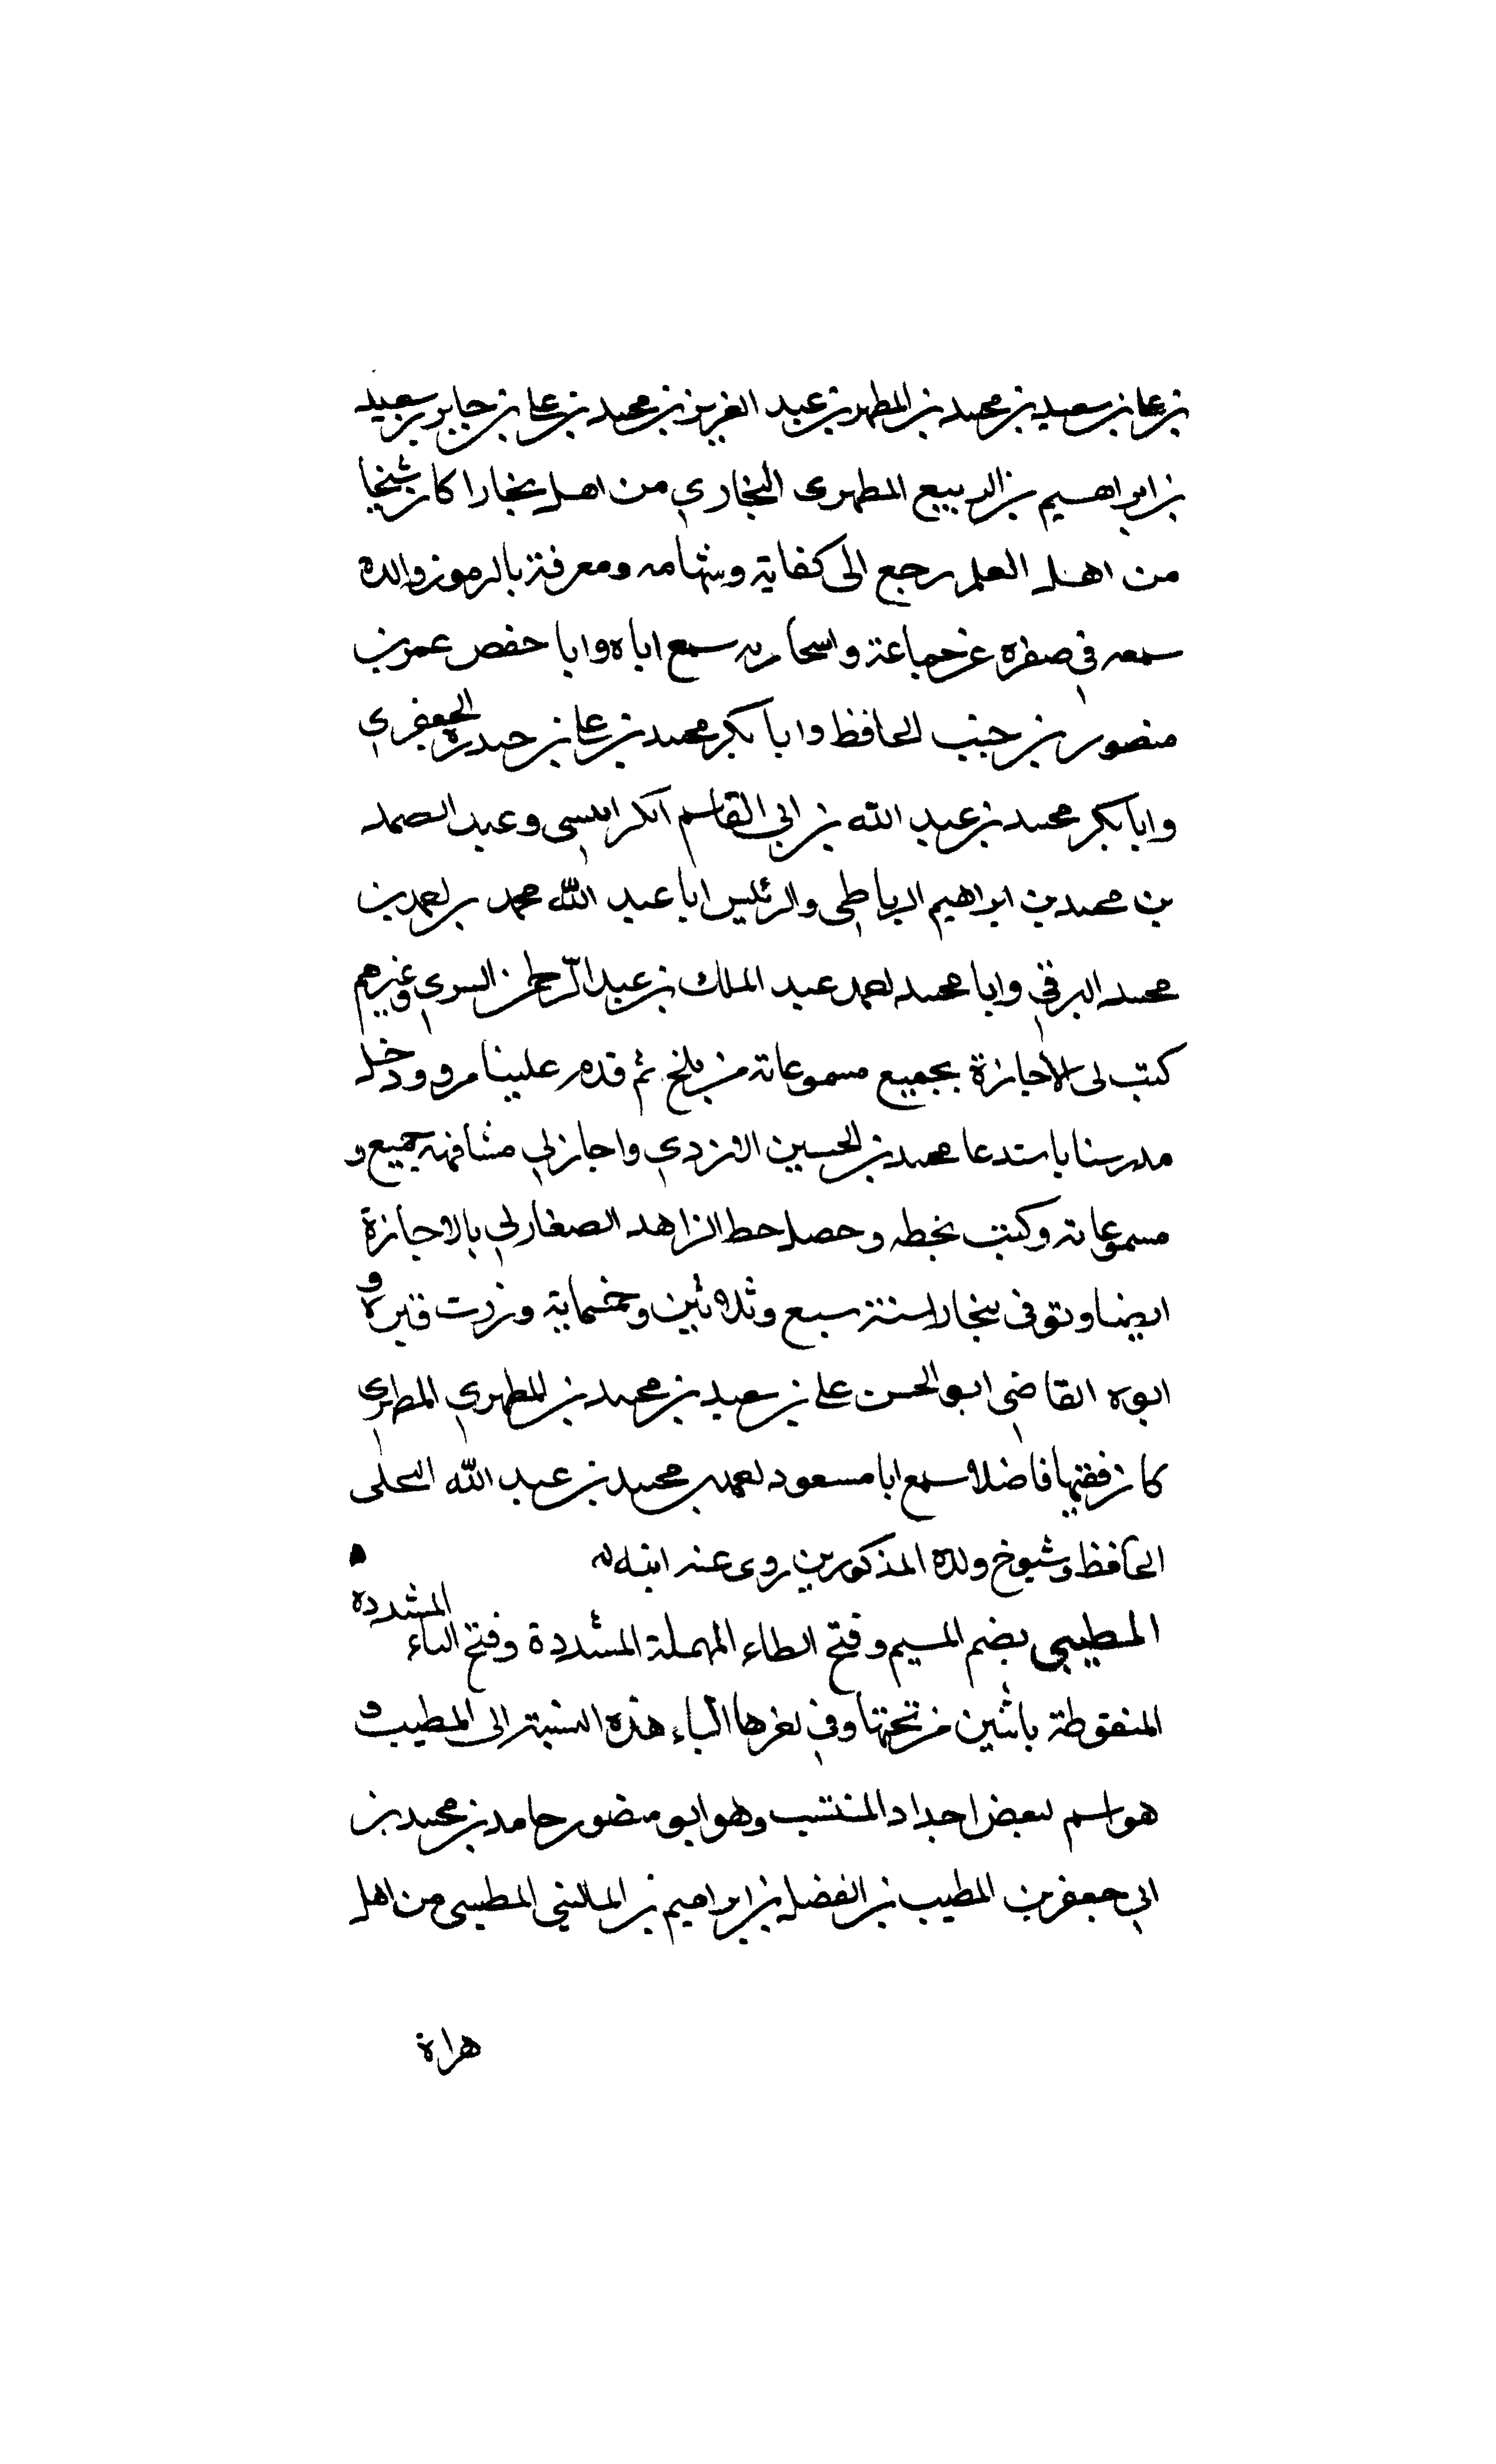 بن علي بن سعيد بن محمد بن المطهر بن عبد العزيز بن محمد بن علي بن جابر بن سعيد
بن ابراهيم بن الربيع المطهرى البخاري من اهل بخارا كان شيخا
من اهل العلم رجع الى كفاية وشهامه ومعرفة بالرموز والده
سمعه في صغره عن جماعة سمع اباه وابا حفص عمر بن
منصور بن خنب الحافظ وابا بكر محمد بن علي بن حيدرة الجعفري
وابا بكر محمد بن عبد الله بن ابي القاسم الكرابيسى وعبد الصمد
بن محمد بن ابراهيم الرباطي والرئيس ابا عبد الله محمد بن احمد بن
محمد البرقي وابا محمد احمد عبد الملك بن عبد الرحمن السرى وغيرهم
كتب لى الاجازة بجميع مسموعاته من بلخ ثم قدم علينا مرو ودخل
مدرسنا باستدعا محمد بن الحسين الازدي واجاز لي مشافهة جميع و
مسموعاته وكتب بخطه وحصل خط الزاهد الصفار لي بالاجازة
ايضا وتوفى ببخارا سنة سبع وثلاثين وخمسماية وزرت قبره و
ابوه القاضي ابو الحسن علي بن سعيد بن محمد بن المطهري المطهري
كان فقيها فاضلا سمع ابا مسعود احمد بن محمد بن عبد الله البجلى
الحافظ وشيوخ ولده المذكورين روى عنه ابنه ه
المطيبي بضم الميم وفتح الطاء المهملة المشددة وفتح الياء المشددة
المنقوطة باثنين من تحتها وفي اخرها الباء هذه النسبة الى المطيب و
هو اسم لبعض اجداد المنتسب وهو ابو منصور حامد بن محمد بن
ابي جعفر بن المطيب بن الفضل بن ابراهيم بن المالينى المطيبى من اهل
هراة